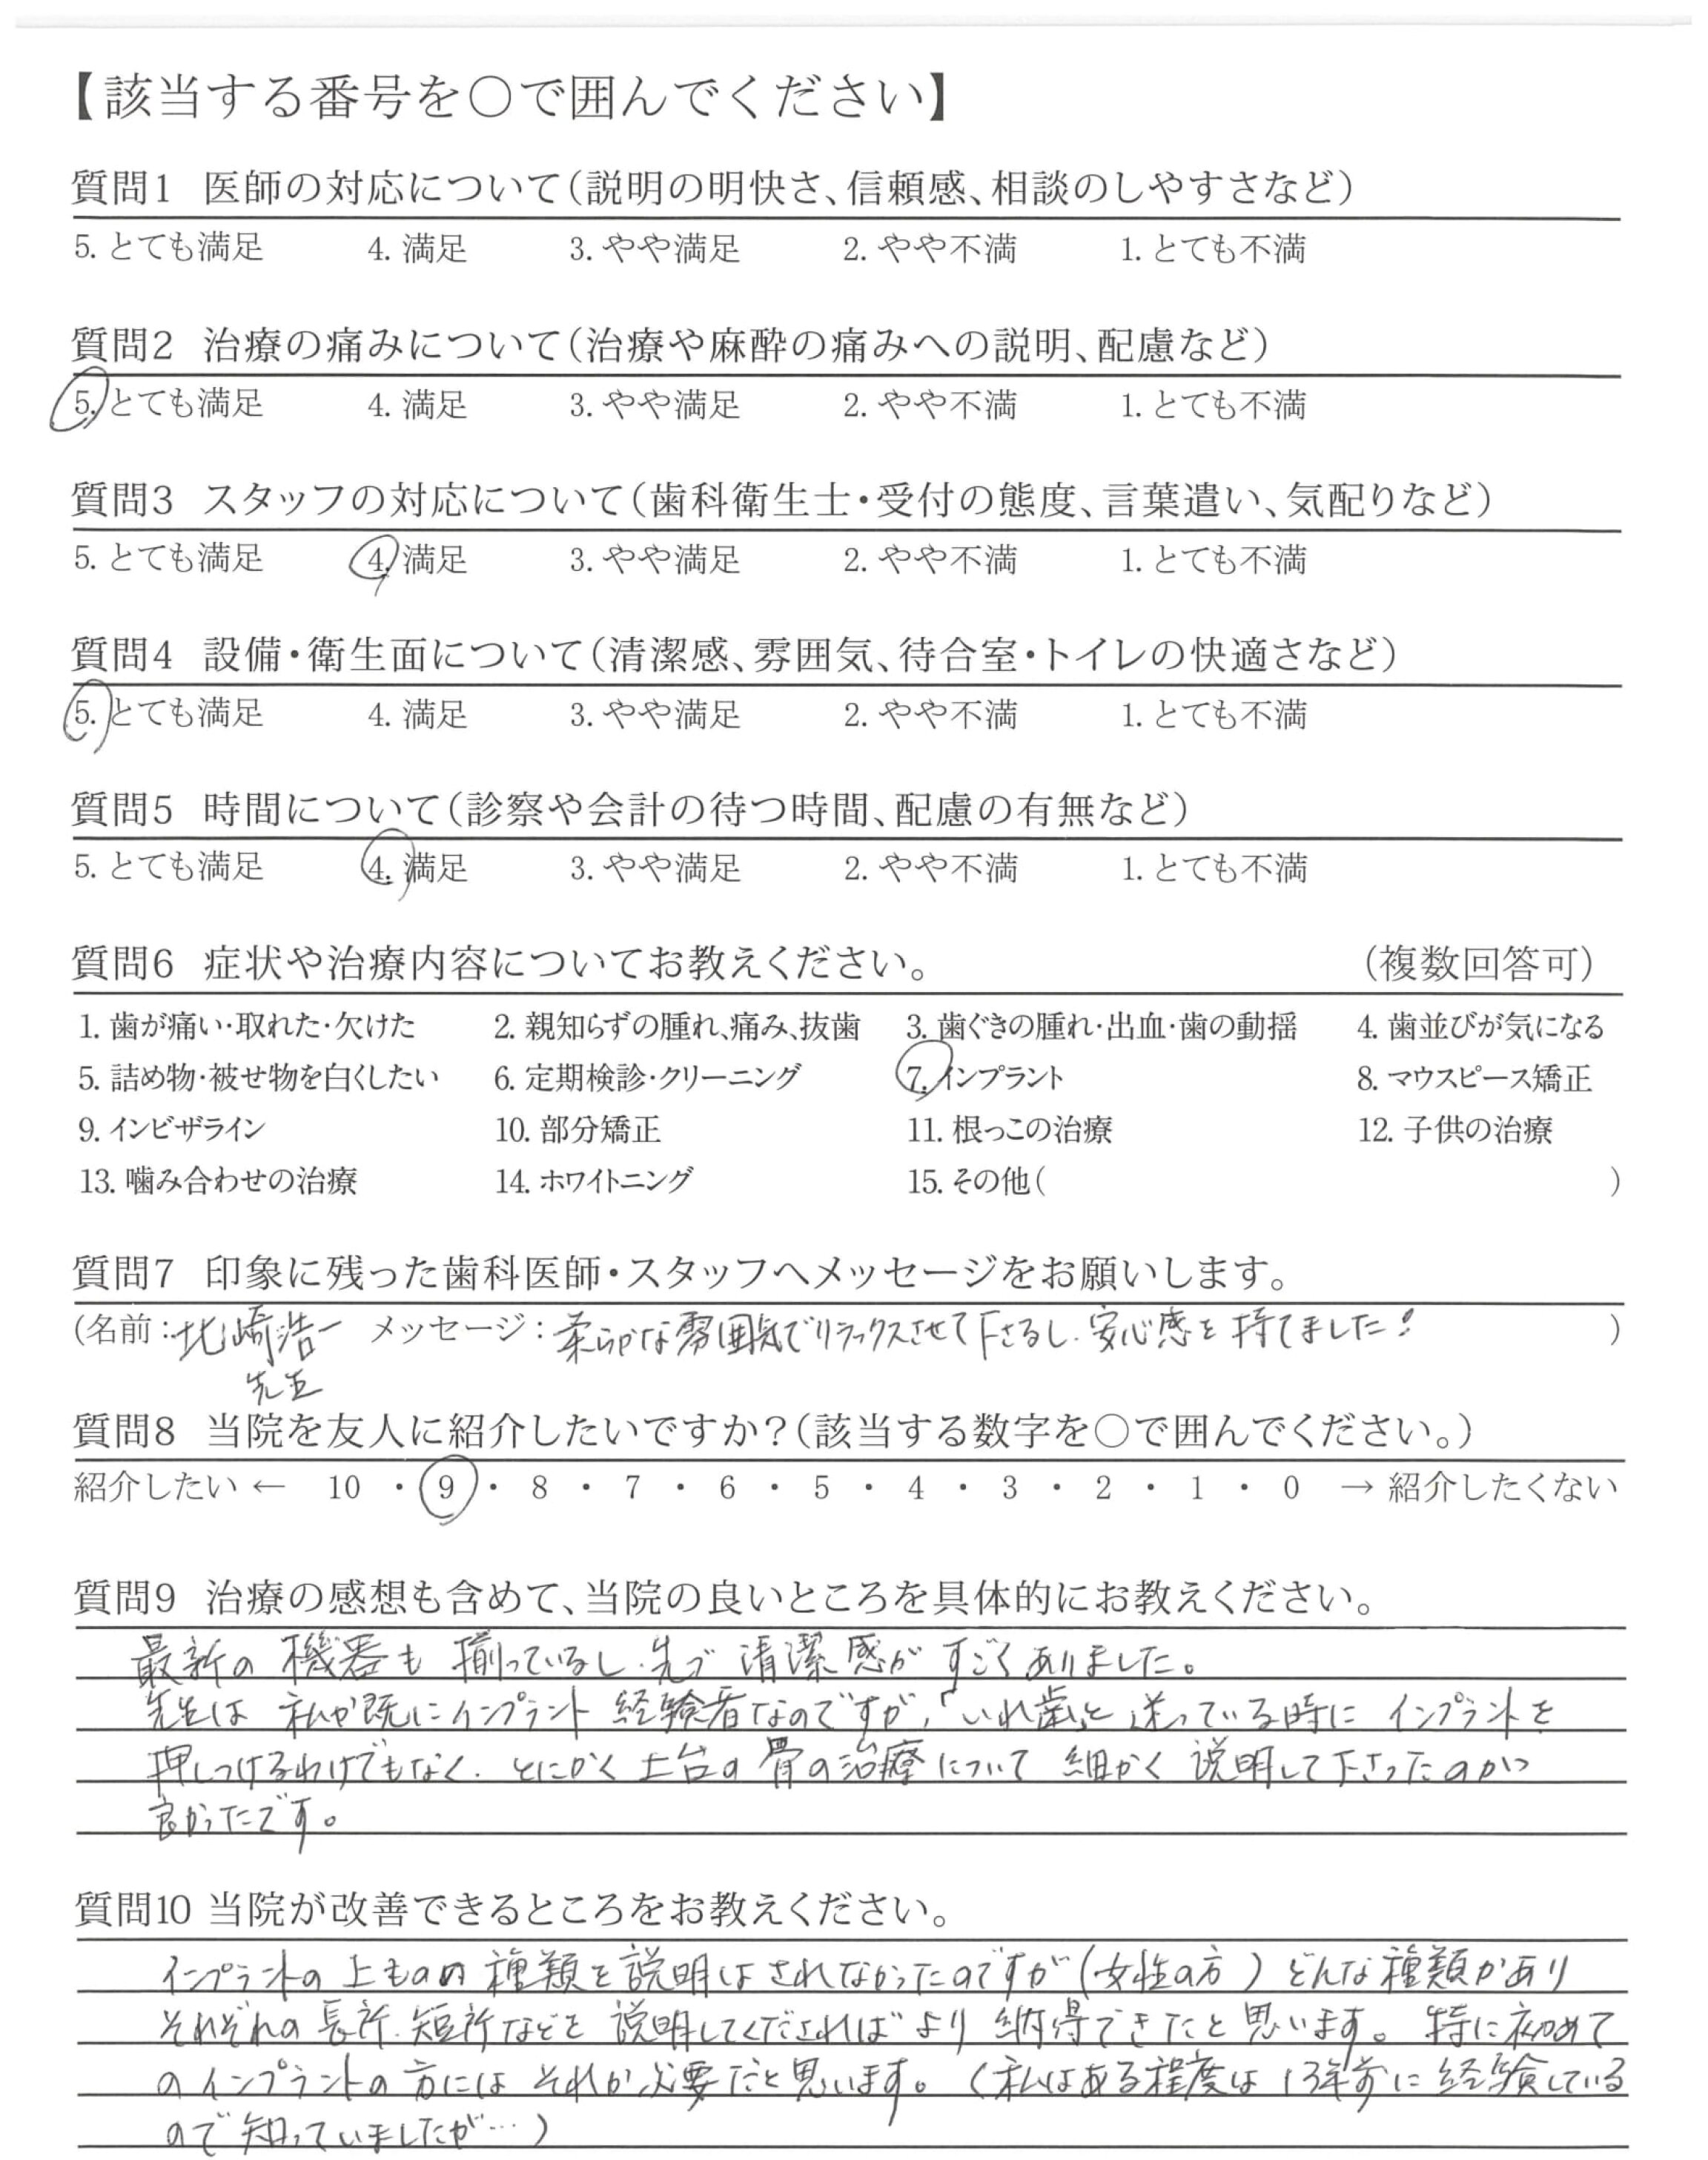 【該当する番号を○で囲んでください】
質問1 医師の対応について(説明の明快さ、信頼感、相談のしやすさなど)
5. とても満足 4. 満足 3. やや満足 2. やや不満 1. とても不満
質問2 治療の痛みについて(治療や麻酔の痛みへの説明、配慮など)
5. とても満足 4. 満足 3. やや満足 2. やや不満 1. とても不満
質問3 スタッフの対応について(歯科衛生士・受付の態度、言葉遣い、気配りなど)
5. とても満足 4. 満足 3. やや満足 2. やや不満 1. とても不満
質問4 設備・衛生面について(清潔感、雰囲気、待合室・トイレの快適さなど)
5. とても満足 4. 満足 3. やや満足 2. やや不満 1. とても不満
質問5 時間について(診察や会計の待つ時間、配慮の有無など)
5. とても満足 4. 満足 3. やや満足 2. やや不満 1. とても不満
質問6 症状や治療内容についてお教えください。 (複数回答可)
1. 歯が痛い・取れた・欠けた 2. 親知らずの腫れ、痛み、抜歯 3. 歯ぐきの腫れ・出血・歯の動揺 4. 歯並びが気になる
5. 詰め物・被せ物を白くしたい 6. 定期検診・クリーニング 7. インプラント 8. マウスピース矯正
9. インビザライン 10. 部分矯正 11. 根っこの治療 12. 子供の治療
13. 噛み合わせの治療 14. ホワイトニング 15. その他( )
質問7 印象に残った歯科医師・スタッフへメッセージをお願いします。
(名前:北崎浩一 メッセージ:柔らかな雰囲気でリラックスさせて下さるし、安心感を持てました! )
先生
質問8 当院を友人に紹介したいですか?(該当する数字を○で囲んでください。)
紹介したい ← 10 ・ 9 ・ 8 ・ 7 ・ 6 ・ 5 ・ 4 ・ 3 ・ 2 ・ 1 ・ 0 → 紹介したくない
質問9 治療の感想も含めて、当院の良いところを具体的にお教えください。
最新の機器も揃っているし、先づ清潔感がすごくありました。
先生は私が既にインプラント経験者なのですが、「いれ歯」と迷っている時にインプラントを
押しつけるわけでもなく、とにかく土台の骨の治療について細かく説明して下さったのがつ
良かったです。
質問10 当院が改善できるところをお教えください。
インプラントの上ものの種類を説明はされなかったのですが(女性の方)どんな種類があり
それぞれの長所、短所などを説明してくだされば より納得できたと思います。特に初めて
のインプラントの方にはそれが必要だと思います。(私はある程度は13年前に経験している
ので知っていましたが…)